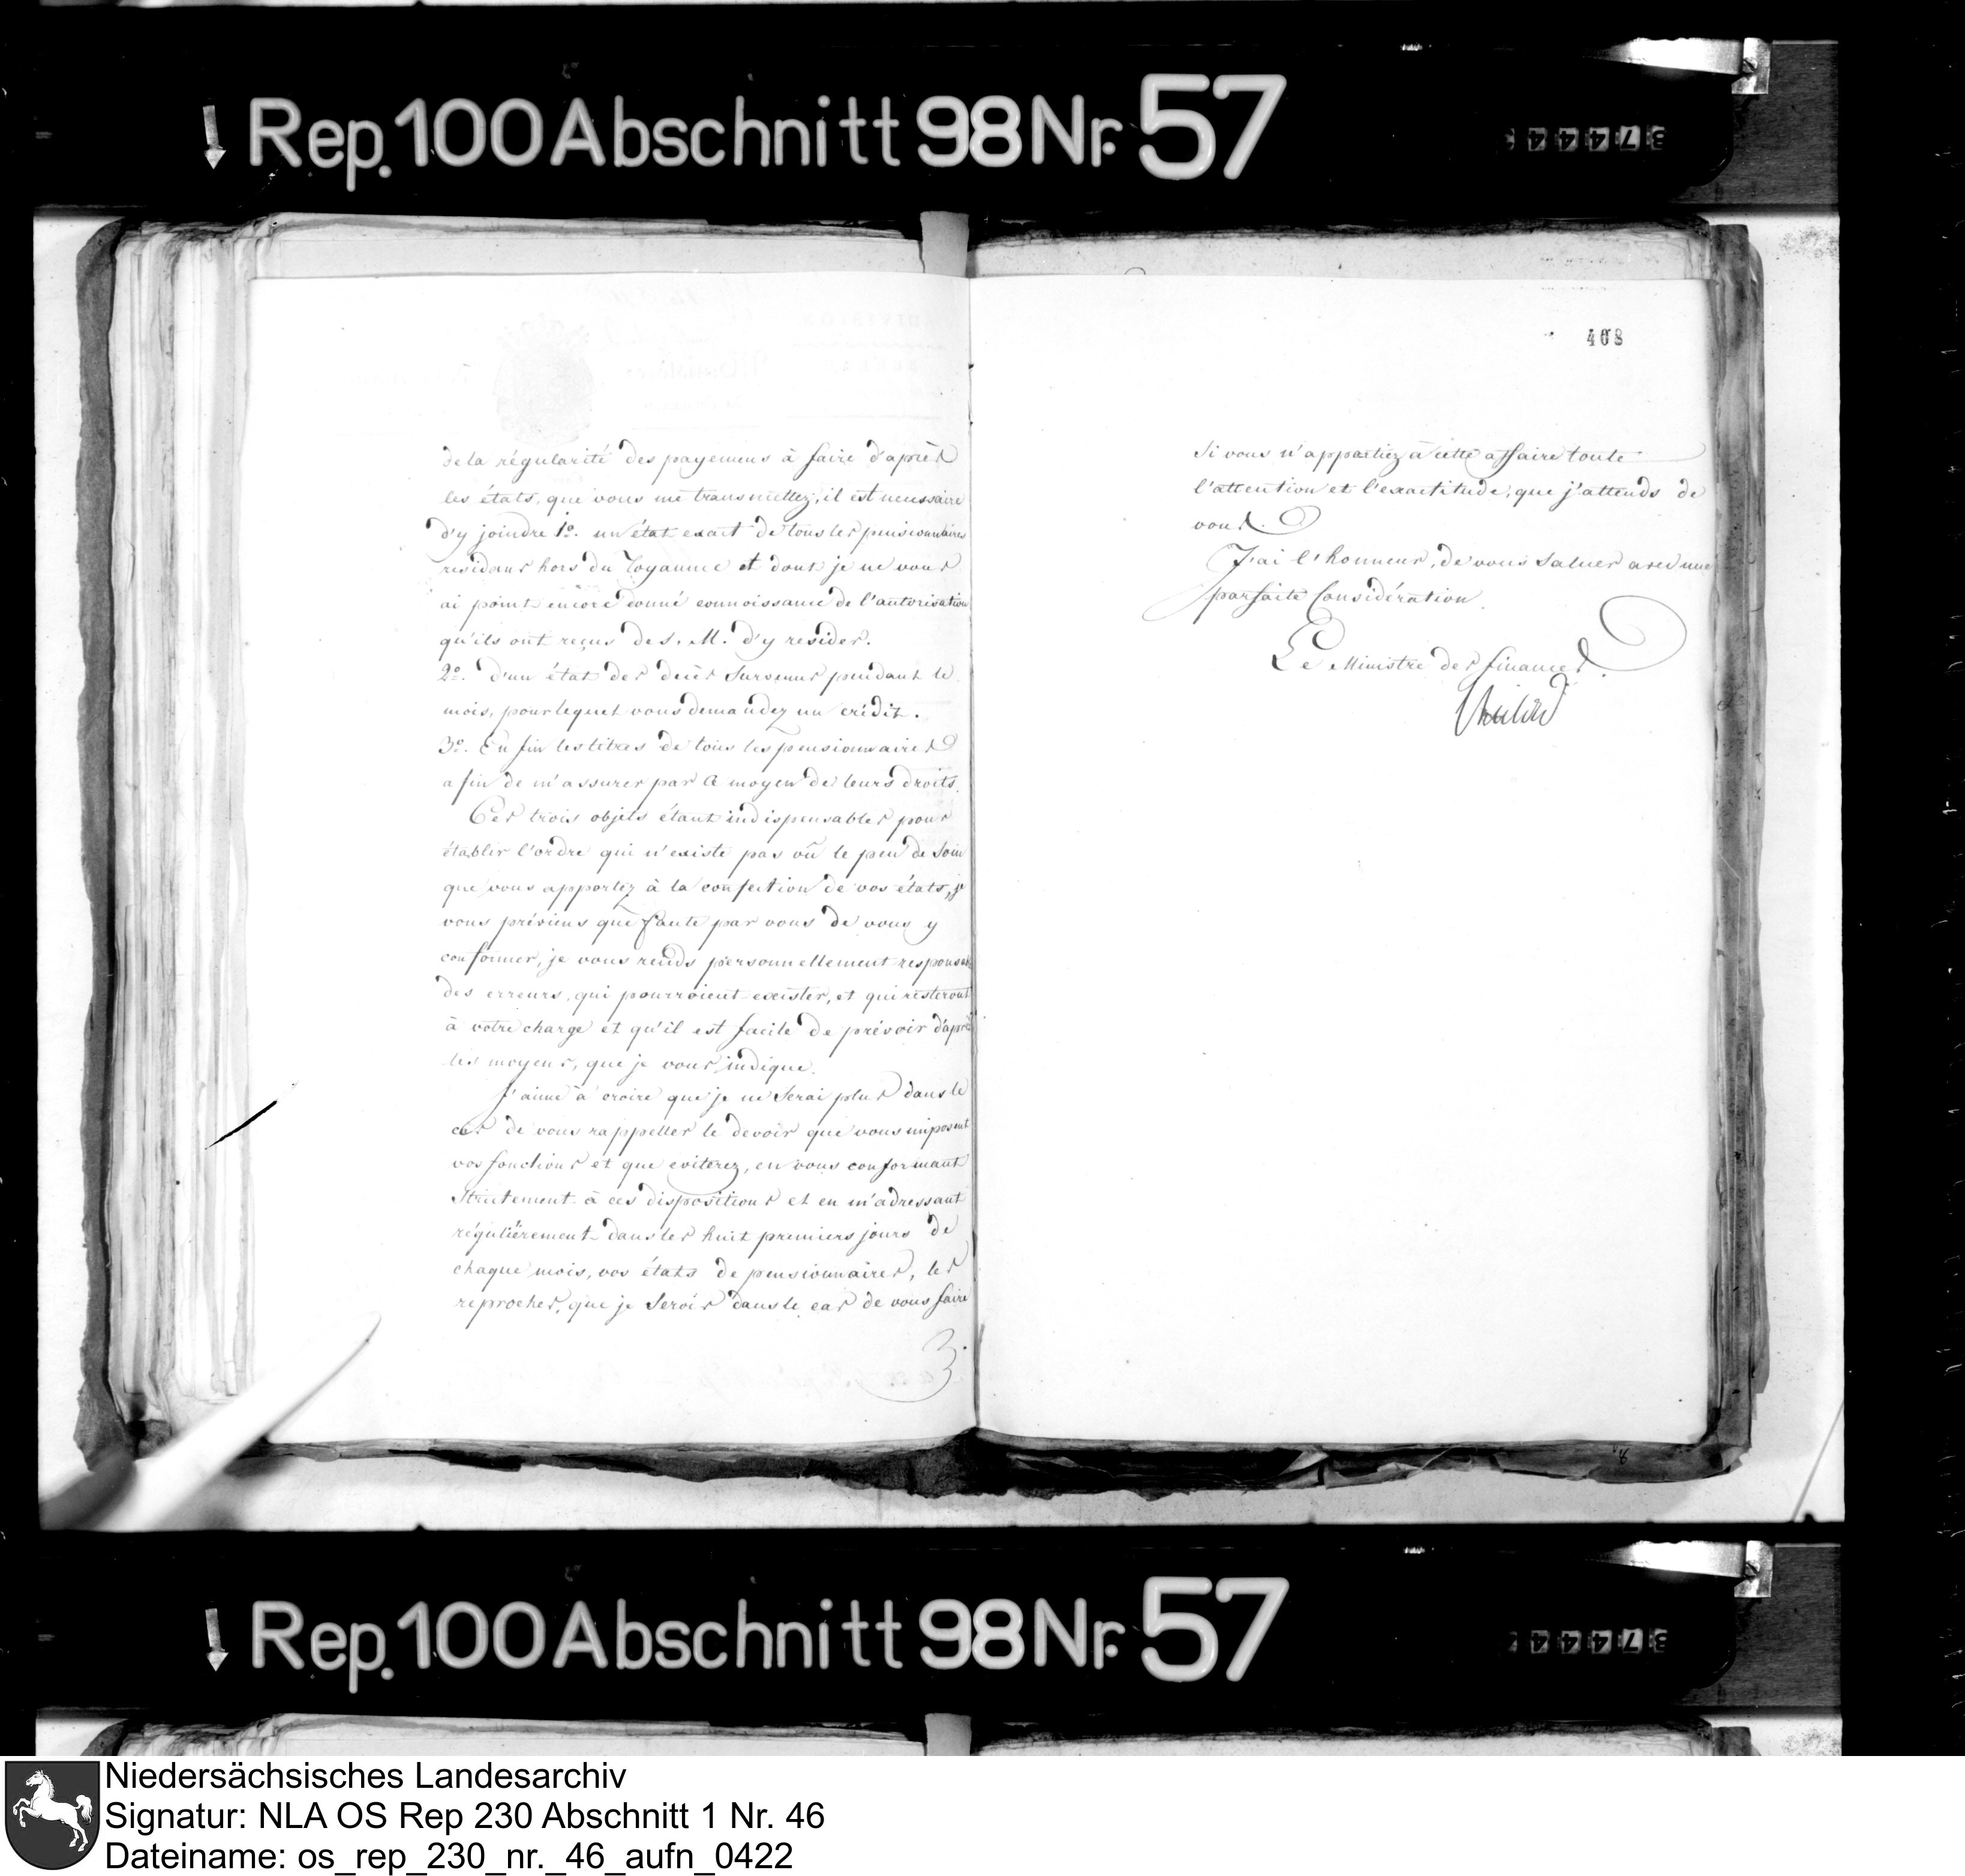 Rep. 100 Abschnitt 98 Nr. 57
408
de la régularité des payemens à faire d'après
les états, que vous me transmettez, il est necessaire
d'y joindre 1º. un état exact de tous les pensionnaires
residans hors du Royaume et dont je ne vous
ai point encore donné connoissance de l'autorisation
qu'ils ont reçus de S. M. d'y resider.
2º. d'un état des decès survenus pendant le
mois, pour lequel vous demandez un crédit.
3º. Enfin les titres de tous les pensionnaires
afin de m'assurer par ce moyen de leurs droits.
Ces trois objets étant indispensables pour
établir l'ordre qui n'existe pas vû le peu de soin
que vous apportez à la confection de vos états, je
vous préviens que faute par vous de vous y
conformer, je vous rends personnellement responsable
des erreurs, qui pourroient exister, et qui resteront
à votre charge et qu'il est facile de prévoir d'après
les moyens, que je vous indique.
J'aime à croire que je ne serai plus dans le
cas de vous rappeller le devoir que vous imposent
vos fonctions et que eviterez, en vous conformant
strictement à ces dispositions et en m'adressant
régulièrement dans les huit premiers jours de
chaque mois, vos états de pensionnaires, les
reproches, que je serois dans le cas de vous faire
si vous n'apportiez à cette affaire toute
l'attention et l'exactitude, que j'attends de
vous.
J'ai l'honneur, de vous saluer avec une
parfaite Considération.
Le Ministre des finances.
Rep. 100 Abschnitt 98 Nr. 57
Niedersächsisches Landesarchiv
Signatur: NLA OS Rep 230 Abschnitt 1 Nr. 46
Dateiname: os_rep_230_nr._46_aufn_0422